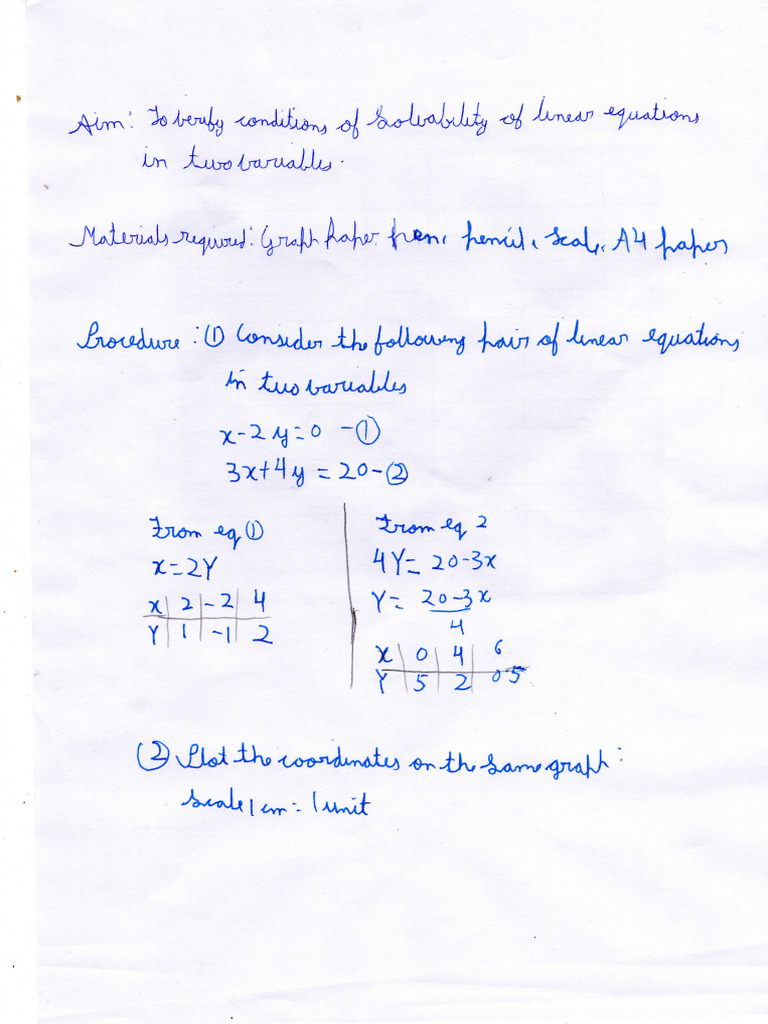 Aim: To verify conditions of Solvability of linear equations
in two variables.
Materials required: Graph Paper, pen, pencil, Scale, A4 paper
Procedure: ① Consider the following pair of linear equations
in two variables
x-2y=0 -①
3x+4y=20-②
From eq ①
x=2Y
X | 2 | -2 | 4
Y | 1 | -1 | 2
From eq 2
4Y=20-3x
Y=20-3x
4
X | 0 | 4 | 6
Y | 5 | 2 | 0.5
② Plot the coordinates on the Same graph:
Scale 1cm=1unit